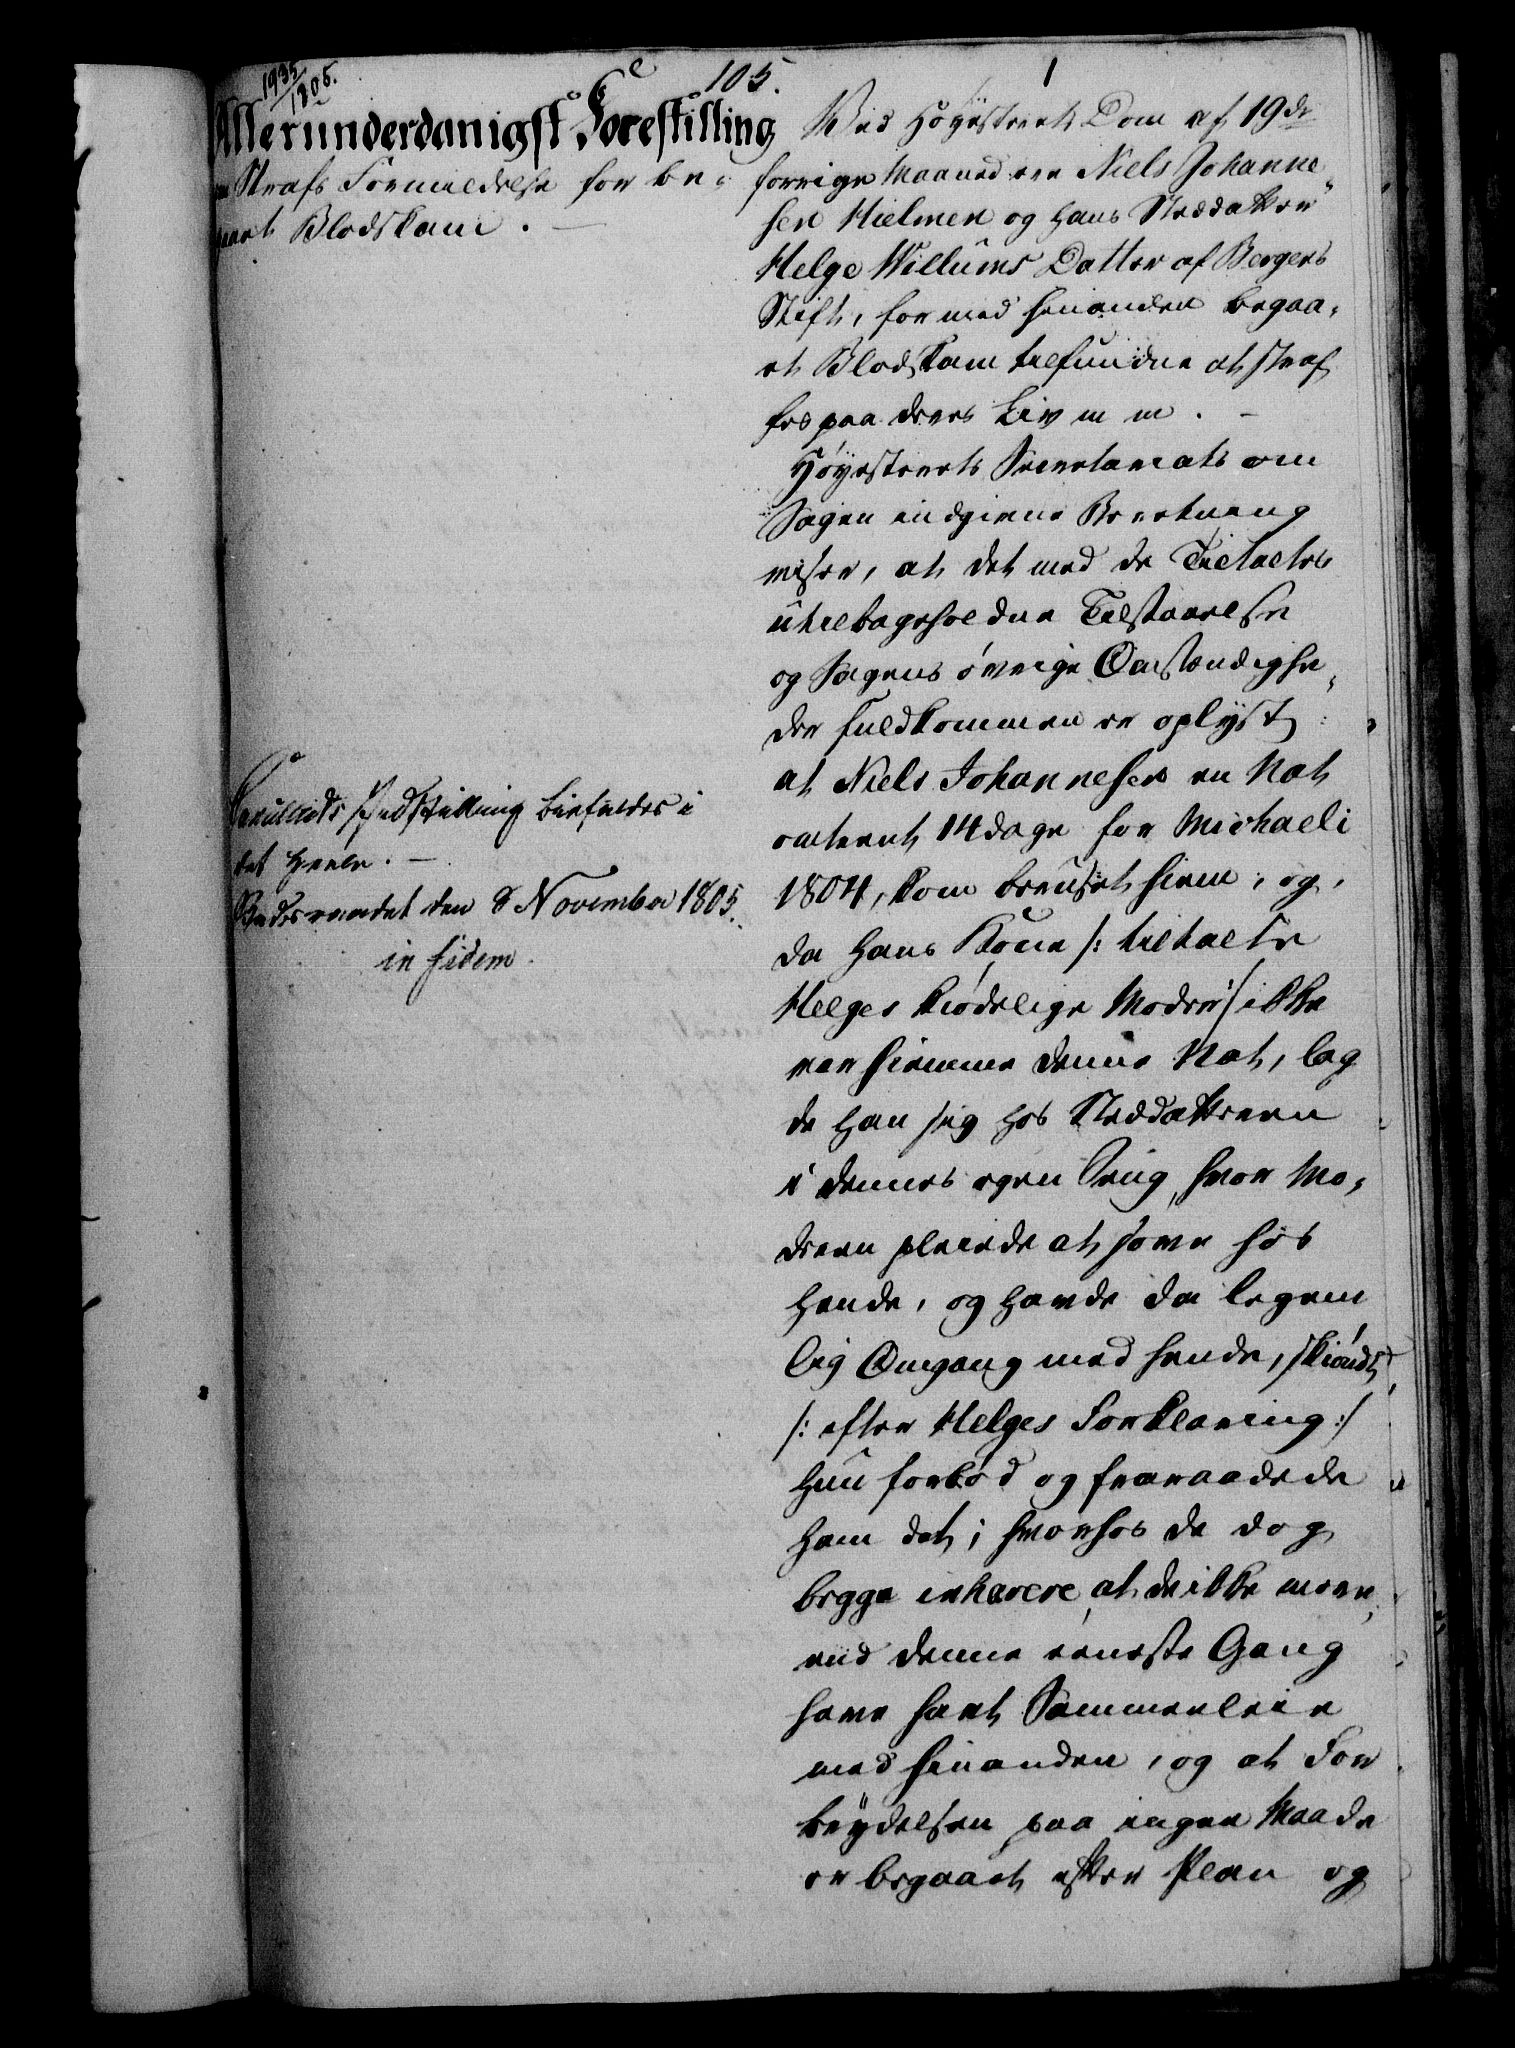 1935/1805.
105.
1
Allerunderdanigst Forestilling
om Strafs Formildelse for be-
gaaet Blodskam. —
Cancelliets Indstilling bifaldes i
det Heele. —
Statsraadet den 8 November 1805.
in fidem.
Ved Høyesterets Dom af 19de
forrige Maaned ere Niels Johanne-
sen Hielmen og hans Steddatter
Helge Willums Datter af Bergens
Stift, for med hinanden begaa-
et Blodskam tilfundne at straf
fes paa deres Liv m m. —
Høyesterets Secretariats om
Sagen indgivne Beretning
viser, at det med de Tiltaltes
utilbageholdne Tilstaaelse
og Sagens øvrige Omstændighe-
der fuldkommen er oplyst:
at Niels Johannesen en Nat
omtrent 14 dage for Michaeli
1804, kom beruset hiem, og,
da hans Kone /: tiltalte
Helges kiødelige Moder :/ ikke
var hiemme denne Nat, lag
de han sig hos Steddatteren
i dennes egen Seng, hvor Mo-
deren pleiede at sove hos
hende, og havde da legem
lig Omgang med hende, skiøndt
/: efter Helges Forklaring :/
hun forbød og fraraadede
ham det; hvorhos de dog
begge inhærere, at de ikke meere
end denne eeneste Gang
have havt Sammenleie
med hinanden, og at For
brydelsen paa ingen Maade
er begaaet efter Plan og